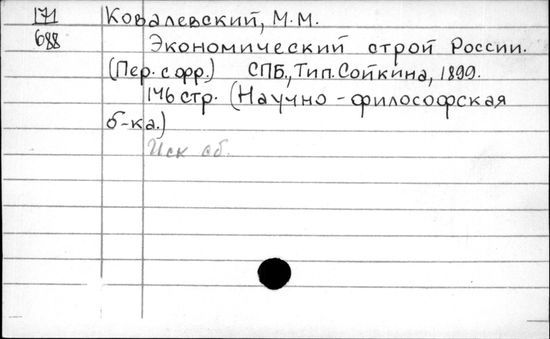 171
688
Ковалевский, М.М.
Экономический строй России.
(Пер. с фр.) СПБ., Тип. Сойкина, 1899.
146 стр. (Научно-философская
б-ка.)
Иск сб.